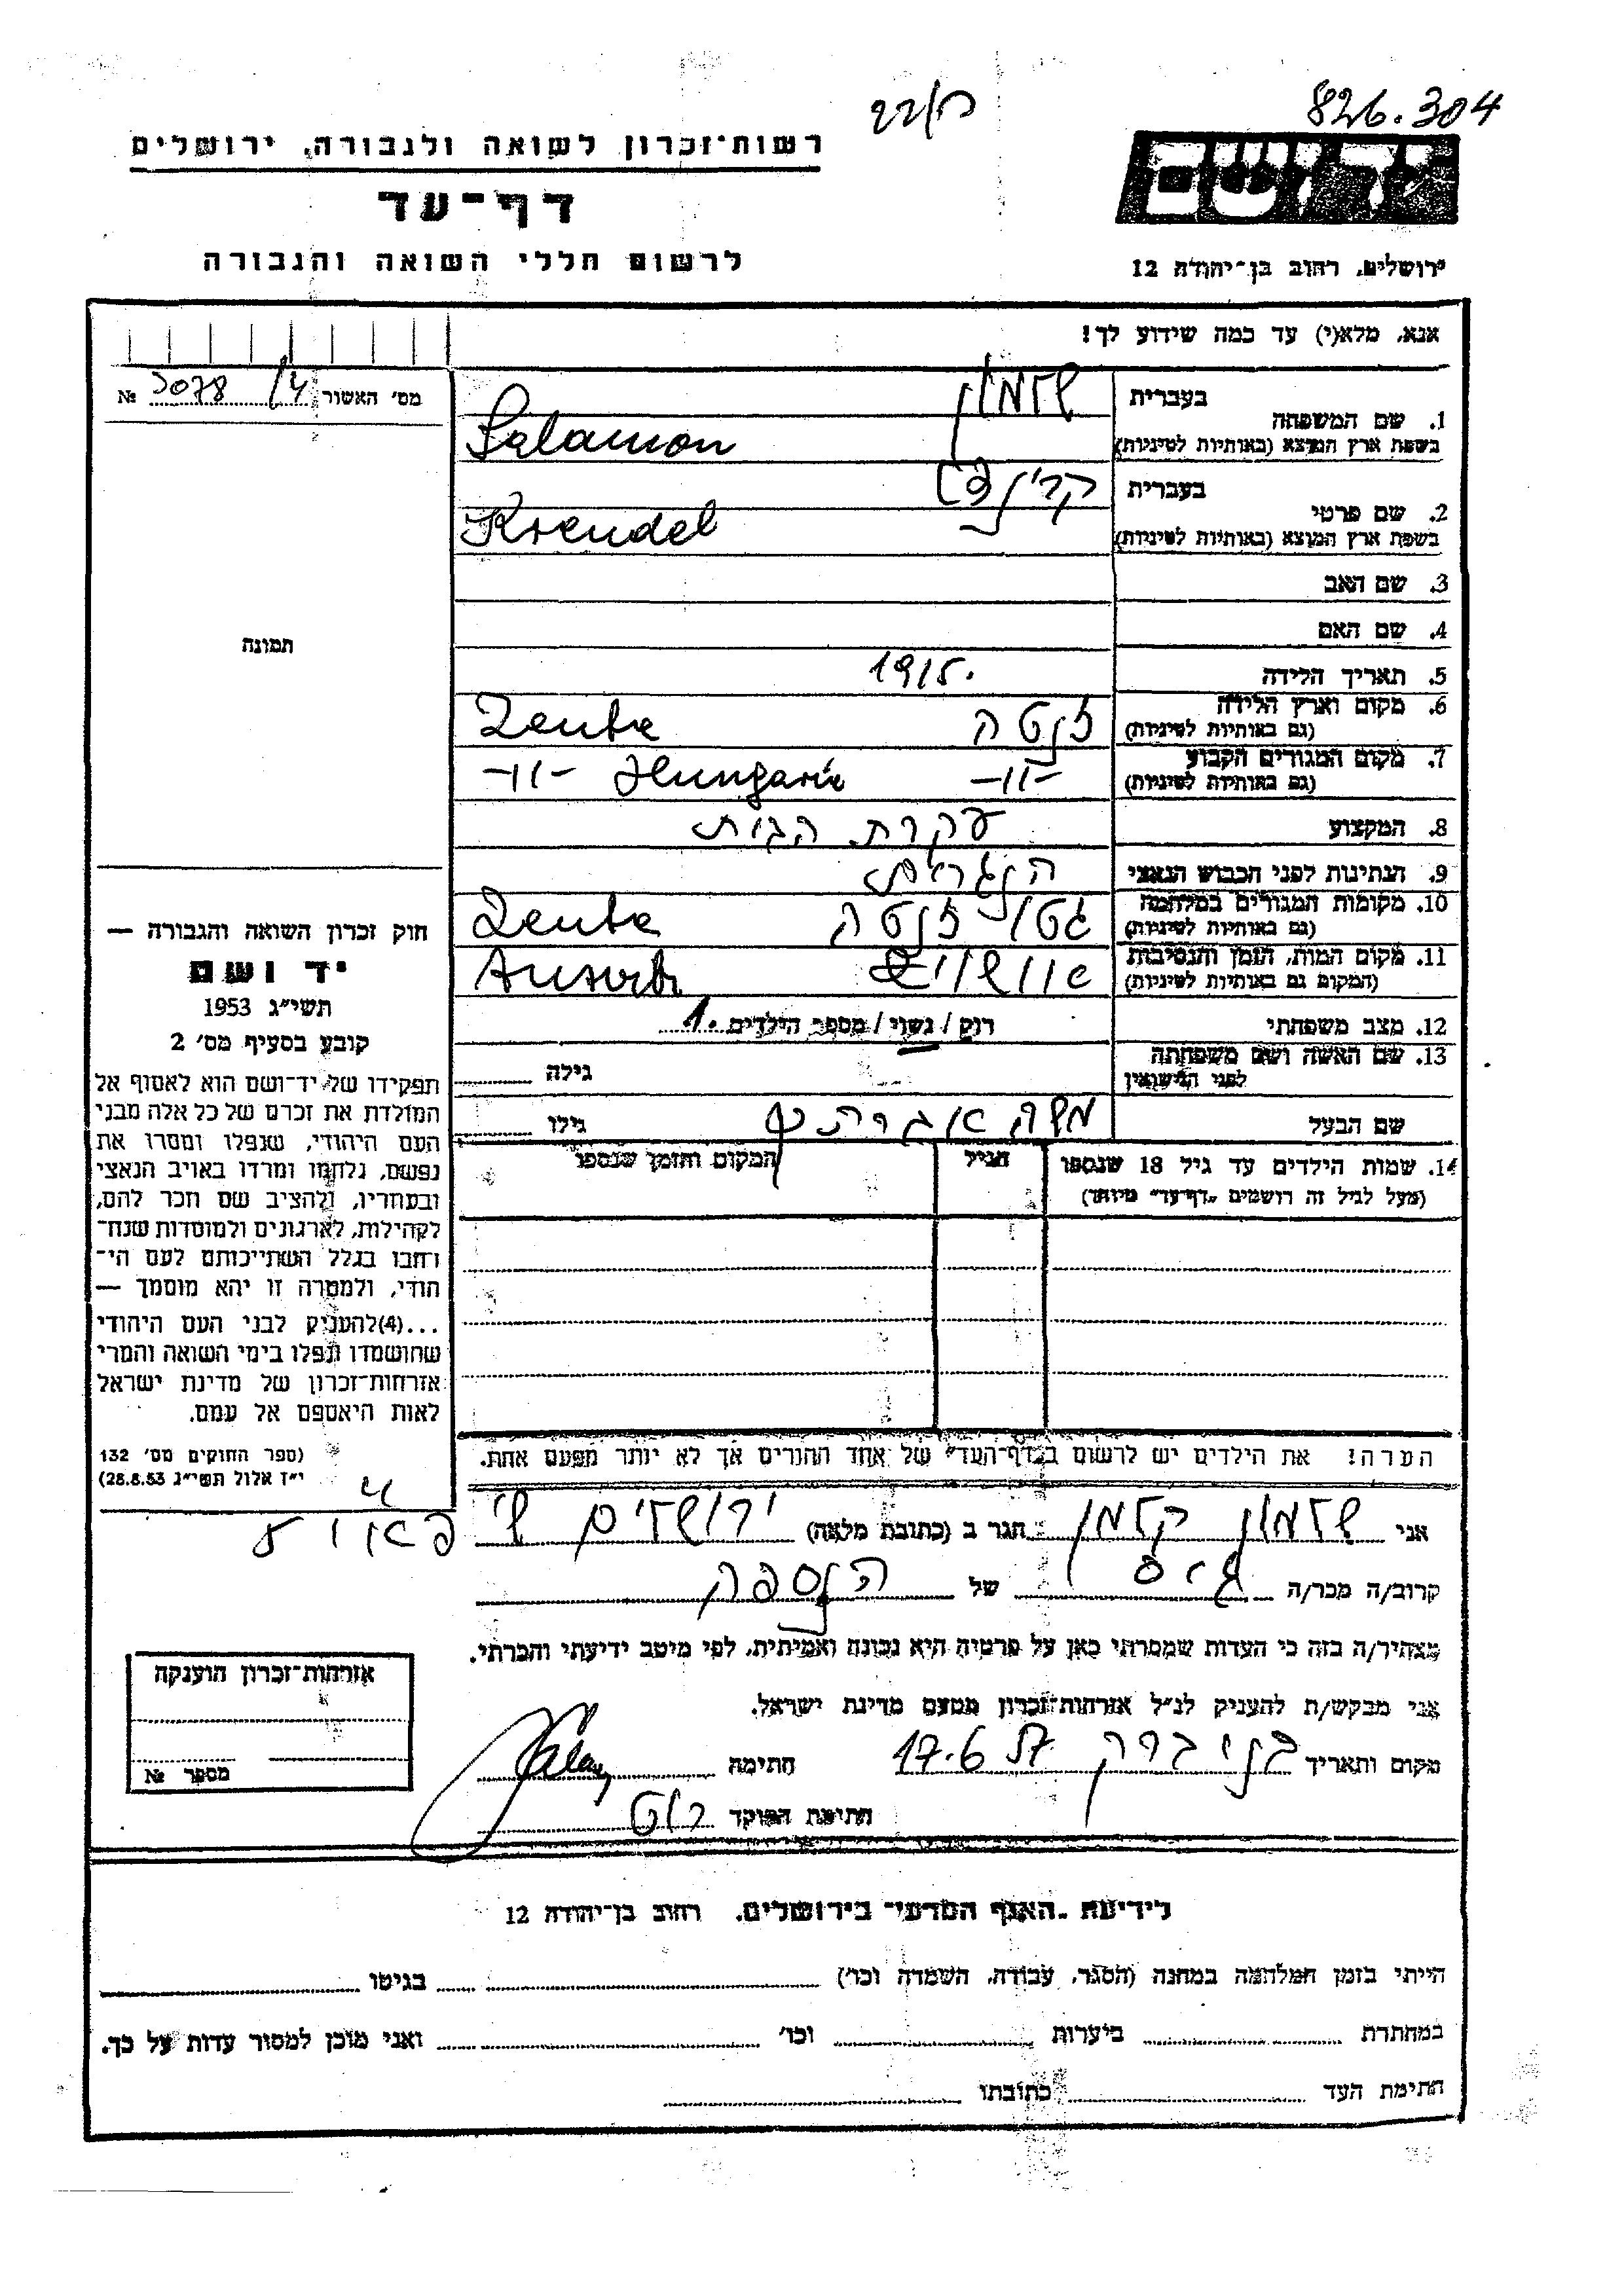 826.304
רשות־זכרון לשואה ולגבורה, ירושלים
יד ושם
דף־עד
לרשום חללי השואה והגבורה
ירושלים, רחוב בן־יהודה 12
אנא, מלא(י) עד כמה שידוע לך!
מס׳ האשור № 3078
1. שם המשפחה
בעברית שלמון
בשפת ארץ המוצא (באותיות לטיניות) Salamon
2. שם פרטי
בעברית
בשפת ארץ המוצא (באותיות לטיניות) Krendel
3. שם האב
4. שם האם
תמונה
5. תאריך הלידה 1915.
6. מקום וארץ הלידה
(גם באותיות לטיניות) זנטה Zenta
7. מקום המגורים הקבוע
(גם באותיות לטיניות) -״- -״- Hungaria
8. המקצוע עקרת הבית
9. הנתינות לפני הכבוש הנאצי הונגרית
10. מקומות המגורים במלחמה
(גם באותיות לטיניות) גטו זנטה Zenta
11. מקום המות, הזמן והנסיבות
(המקום גם באותיות לטיניות) אוושוויץ
12. מצב משפחתי רוק / נשוי / מספר הילדים 1.
13. שם האשה ושם משפחתה
לפני הנישואין גילה
שם הבעל משה גילו
14. שמות הילדים עד גיל 18 שנספו
(מעל לגיל זה רושמים „דף־עד״ מיוחד)
הגיל
המקום והזמן שנספו
הערה! את הילדים יש לרשום ב„דף־העד״ של אחד ההורים אך לא יותר מפעם אחת.
חוק זכרון השואה והגבורה —
יד ושם
תשי״ג 1953
קובע בסעיף מס׳ 2
תפקידו של יד־ושם הוא לאסוף אל
המולדת את זכרם של כל אלה מבני
העם היהודי, שנפלו ומסרו את
נפשם, נלחמו ומרדו באויב הנאצי
ובעוזריו, ולהציב שם וזכר להם,
לקהילות, לארגונים ולמוסדות שנח־
רבו בגלל השתייכותם לעם הי־
הודי, ולמטרה זו יהא מוסמך —
...(4) להעניק לבני העם היהודי
שהושמדו ונפלו בימי השואה והמרי
אזרחות־זכרון של מדינת ישראל
לאות היאספם אל עמם.
(ספר החוקים מס׳ 132
י״ז אלול תשי״ג 28.8.53)
אני שלמון קלמן הגר ב (כתובת מלאה) ירושלים
קרוב/ה מכר/ה גיס של הנספה
מצהיר/ה בזה כי העדות שמסרתי כאן על פרטיה היא נכונה ואמיתית, לפי מיטב ידיעתי והכרתי.
אני מבקש/ת להעניק לנ״ל אזרחות־זכרון מטעם מדינת ישראל.
מקום ותאריך בני ברק 17.6.57 חתימה
חתימת הפוקד רוט
אזרחות־זכרון הוענקה
מספר №
לידיעת „האגף המדעי״ בירושלים, רחוב בן־יהודה 12
הייתי בזמן המלחמה במחנה (הסגר, עבודה, השמדה וכו׳) בגיטו
במחתרת ביערות וכו׳ ואני מוכן למסור עדות על כך.
חתימת העד כתובתו